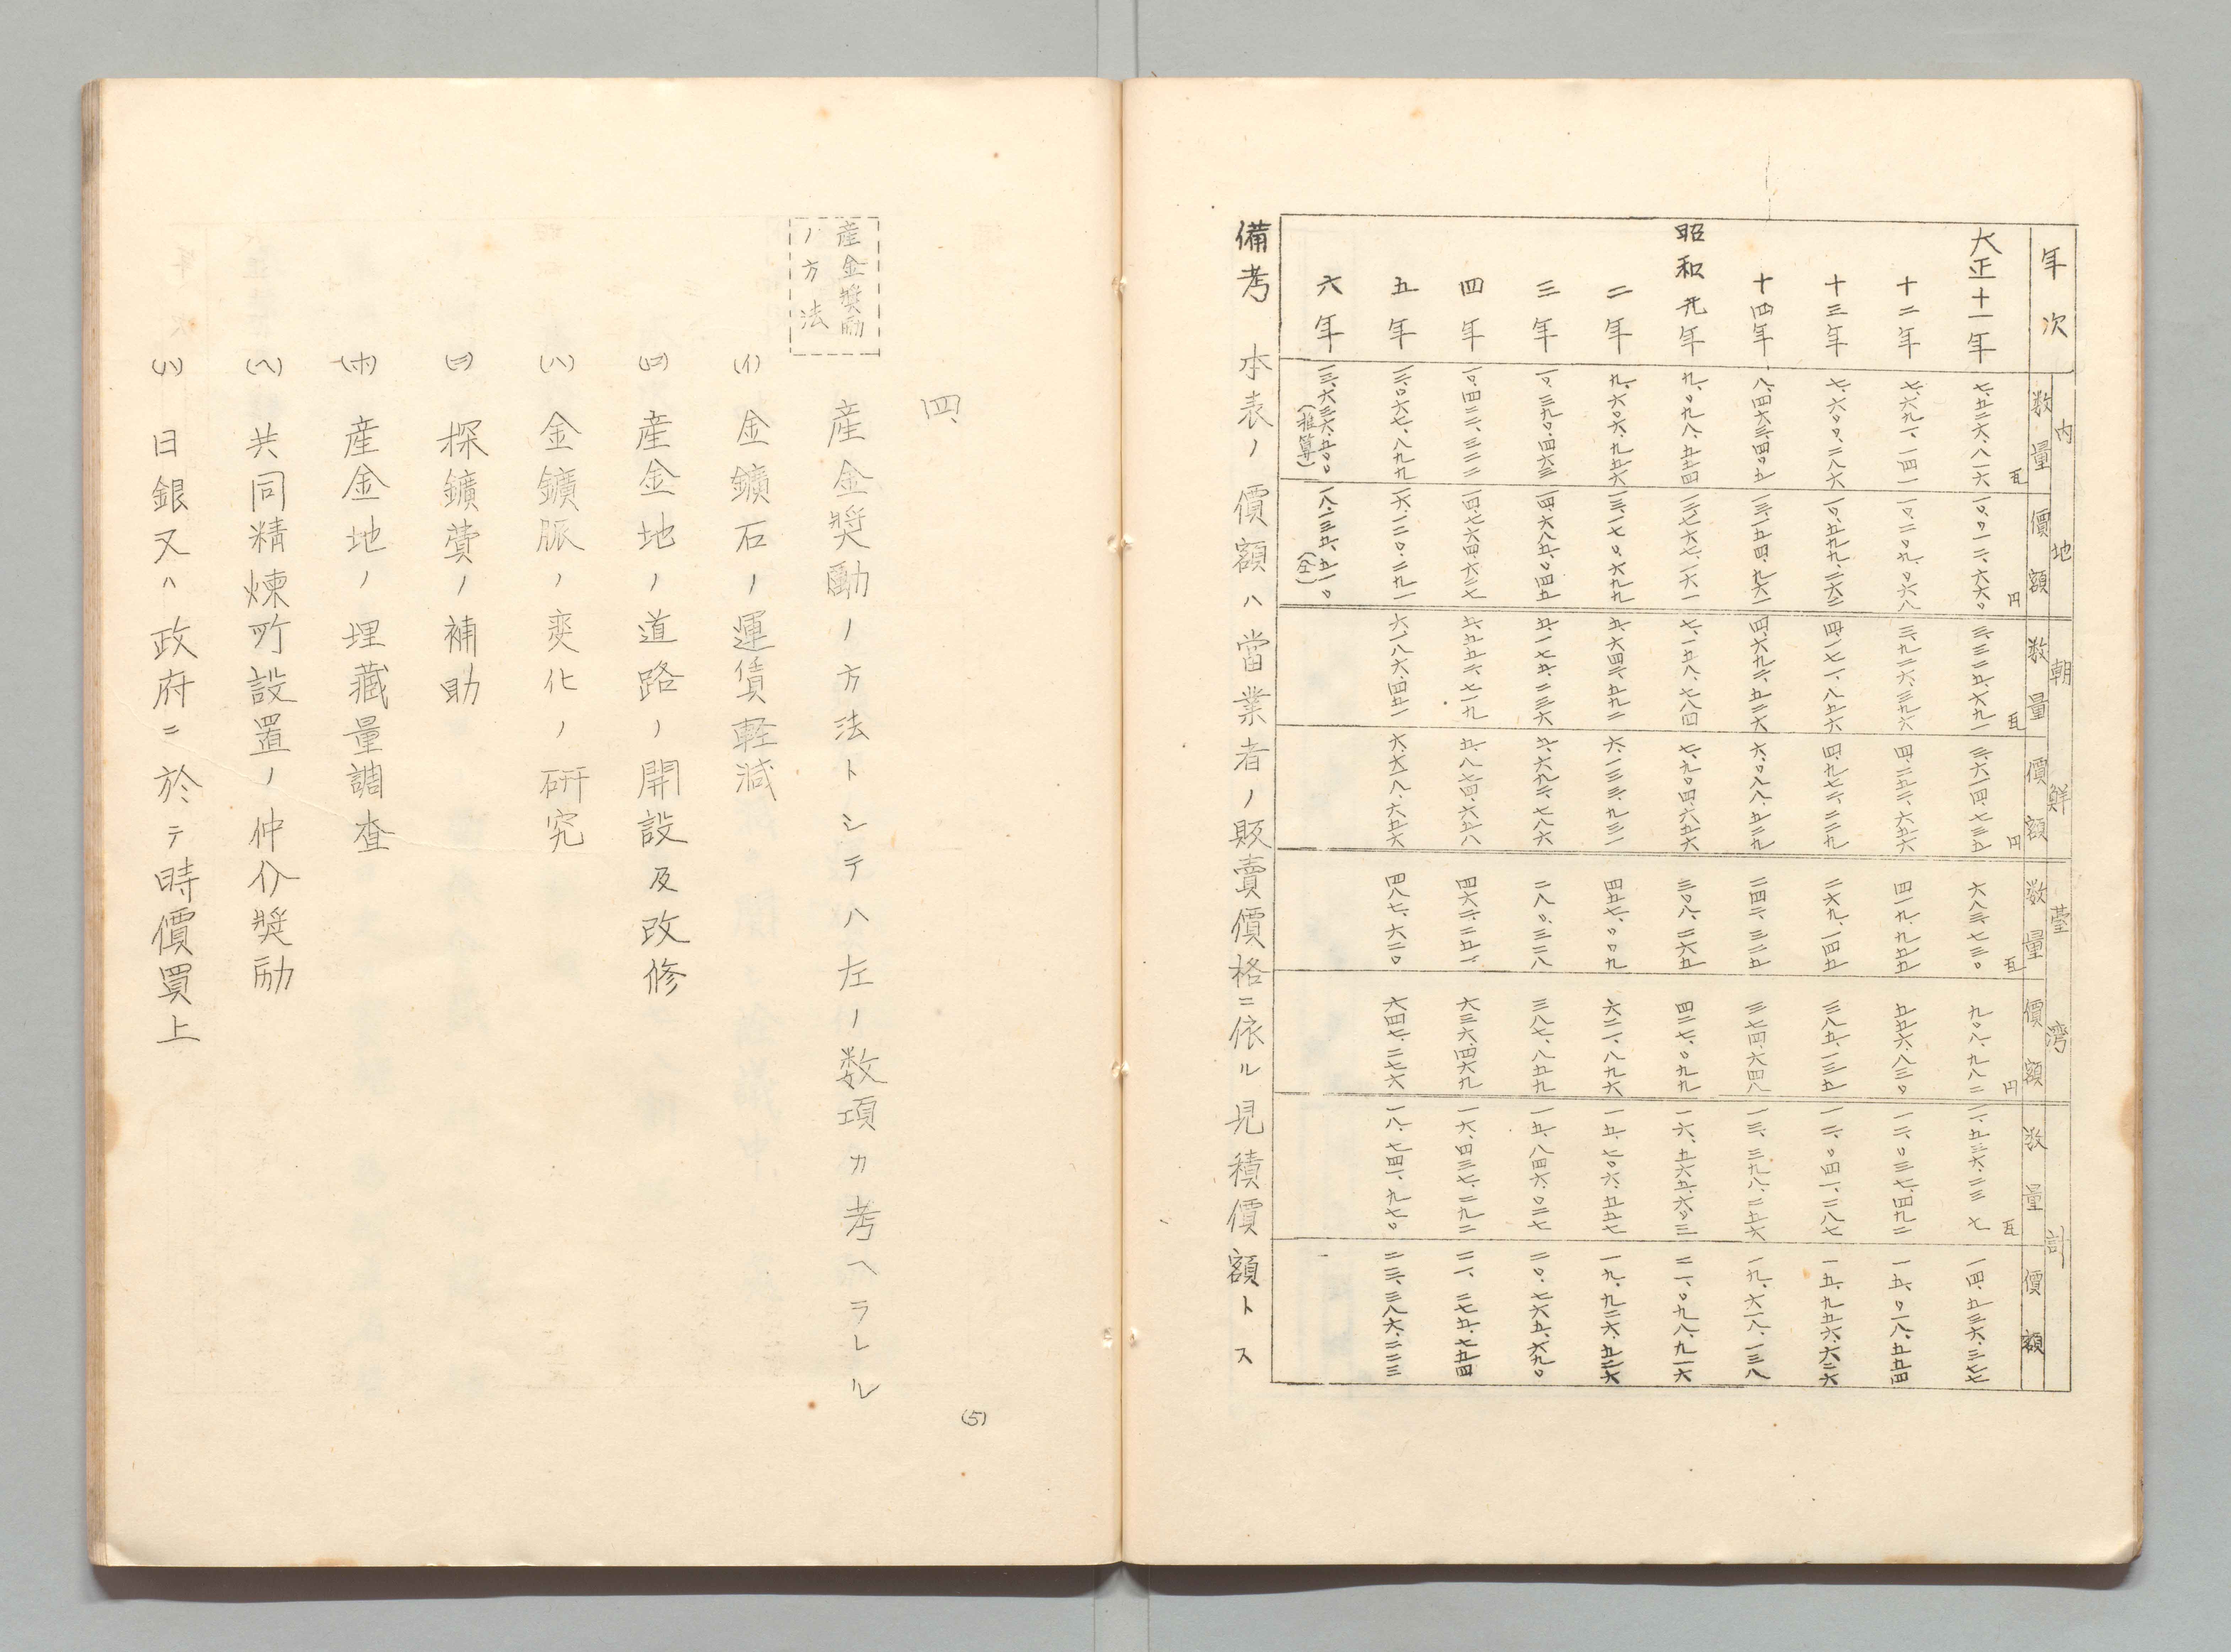 年次 内地 朝鮮 臺湾 計
数量 價額 数量 價額 数量 價額 数量 價額
瓦 円 瓦 円 瓦 円 瓦
大正十一年 七、五二六、八一六 一〇、〇一二、六六〇 三、三二五、六九一 三、六一四、七三五 六八三、七三〇 九〇八、九八二 一一、五三六、二三七 一四、五三六、三七七
十二年 七、六九一、一四一 一〇、二〇九、〇六八 三、九二六、三九六 四、二五二、六五六 四一九、九五五 五五六、八三〇 一二、〇三七、四九二 一五、〇一八、五五四
十三年 七、六〇〇、二八六 一〇、五九九、二六二 四、一七一、八五六 四、九七二、二二九 二六九、一四五 三八五、一三五 一二、〇四一、二八七 一五、九五六、六二六
十四年 八、四六三、四〇五 一三、一五四、九六一 四、六九二、五二六 六、〇八八、五二九 二四二、三二五 三七四、六四八 一三、三九八、二五六 一九、六一八、一三八
昭和元年 九、〇九八、五五四 一二、七六七、一六一 七、一五八、七八四 七、九〇四、六五六 三〇八、二六五 四二七、〇九九 一六、五六五、六〇三 二一、〇九八、九一六
二年 九、六〇六、九五六 一三、一七〇、六九九 五、六四二、五九二 六、一三三、九三一 四五七、〇〇九 六二一、八九六 一五、七〇六、五五七 一九、九二六、五二六
三年 一〇、三九〇、四六三 一四、六八五、〇四五 五、一七五、二三六 五、六九二、七八六 二八〇、三二八 三八七、八五九 一五、八四六、〇二七 二〇、七六五、六九〇
四年 一〇、四二二、三二二 一四、七六四、六二七 五、五五二、七一九 五、八七四、六五八 四六二、二五一 六三六、四六九 一六、四三七、二九二 二一、二七五、七五四
五年 一二、〇六七、八九九 一六、一二〇、二九一 六、一八六、四五一 六、六一八、六五六 四八七、六二〇 六四七、二七六 一八、七四一、九七〇 二三、三八六、二二三
六年 一三、六三六、五〇〇(推算) 一八、一三五、五一〇(仝)
備考 本表ノ價額ハ當業者ノ販賣價格ニ依ル見積價額トス
(5)
四、
産金奬励
ノ方法
産金奬勵ノ方法トシテハ左ノ数項カ考ヘラレル
(イ) 金鑛石ノ運賃軽減
(ロ) 産金地ノ道路ノ開設及改修
(ハ) 金鑛脈ノ変化ノ研究
(ニ) 探鑛費ノ補助
(ホ) 産金地ノ埋藏量調査
(ヘ) 共同精煉所設置ノ仲介奬励
(ト) 日銀又ハ政府ニ於テ時價買上